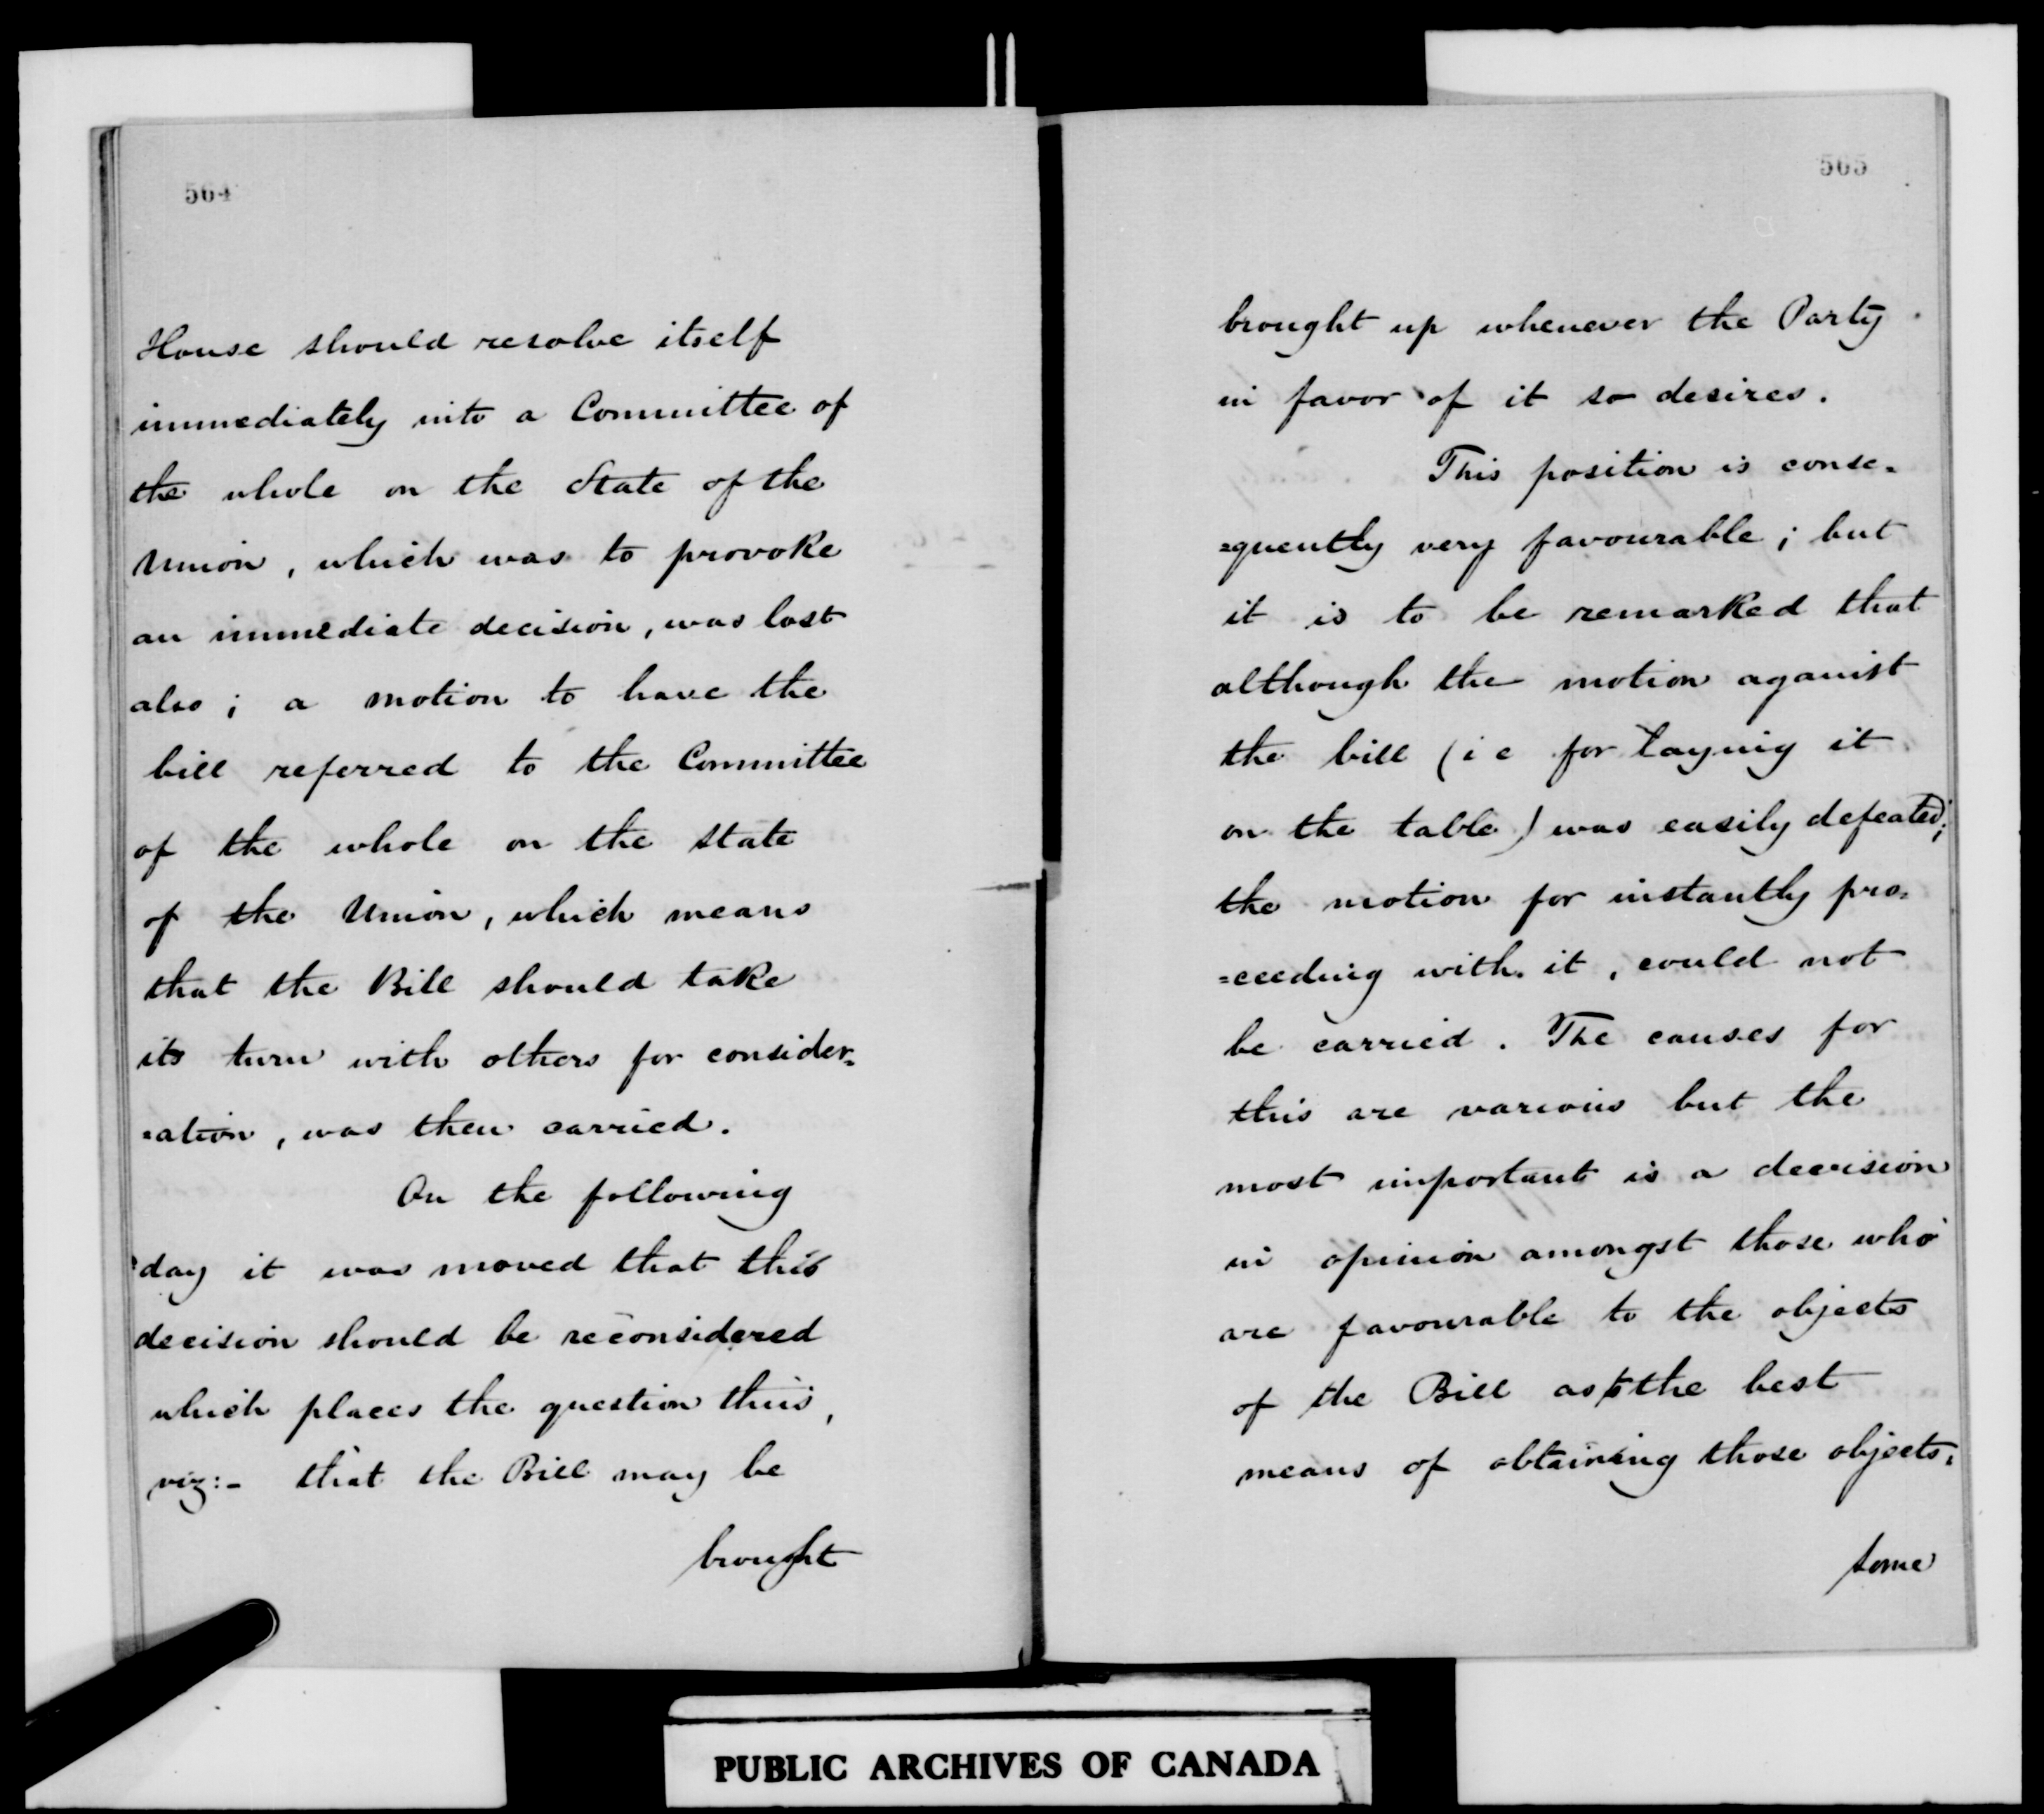 564
House should resolve itself
immediately into a Committee of
the whole on the State of the
Union, which was to provoke
an immediate decision, was lost
also; a motion to have the
bill referred to the Committee
of the whole on the state
of the Union, which means
that the Bill should take
its turn with others for consider=
=ation, was then carried.
On the following
day it was moved that this
decision should be reconsidered
which places the question thus,
viz:- that the Bill may be
brought
565
brought up whenever the Party
in favor of it so desires.
This position is conse=
=quently very favourable; but
it is to be remarked that
although the motion against
the bill (i e for laying it
on the table) was easily defeated;
the motion for instantly pro=
=ceeding with it, could not
be carried. The causes for
this are various but the
most important is a decision
in opinion amongst those who
are favourable to the objects
of the Bill as to the best
means of obtaining those objects.
some
PUBLIC ARCHIVES OF CANADA